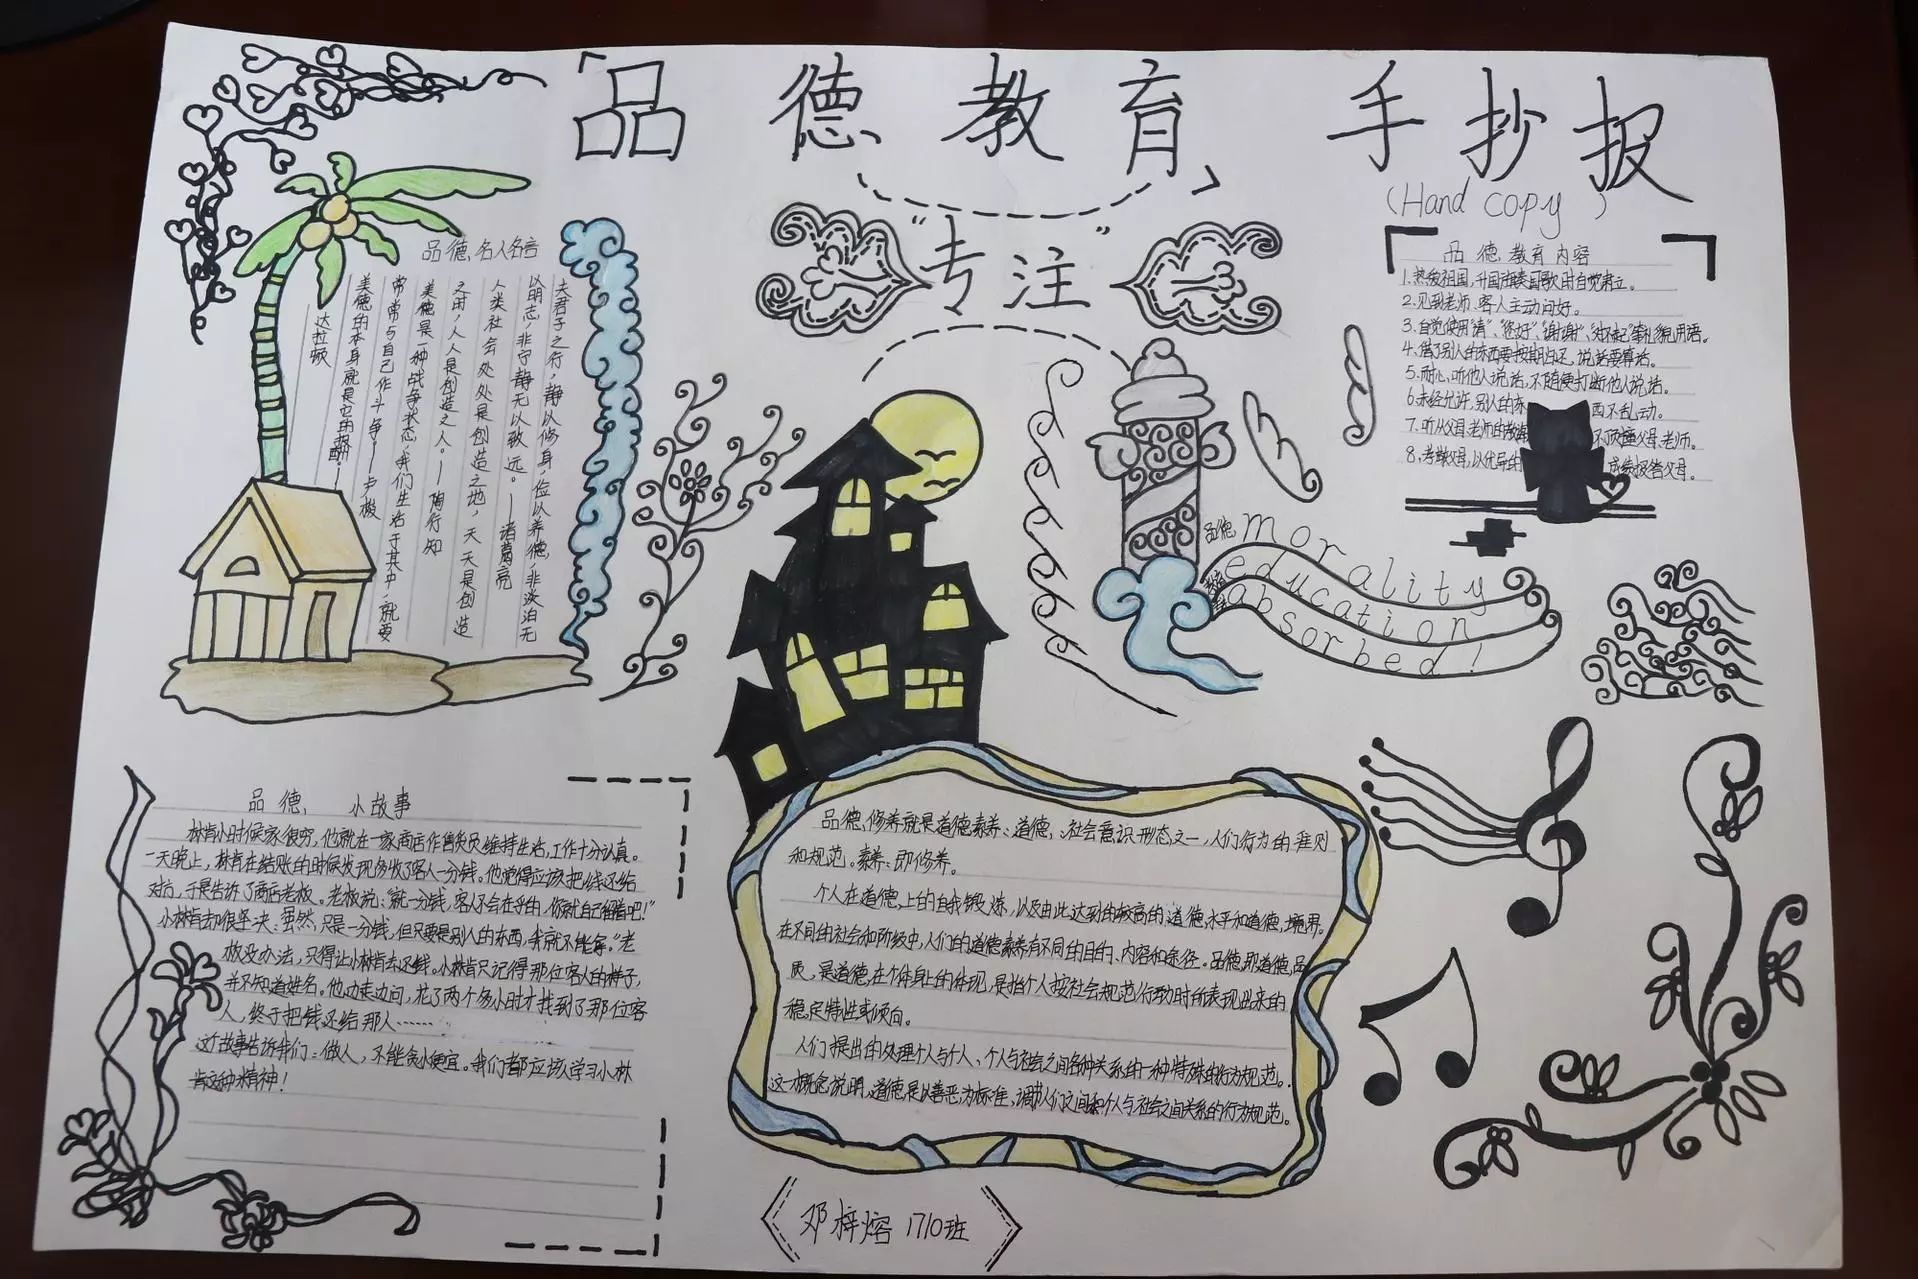 「品德教育」手抄报
(Hand copy)
"专注"
品德名人名言
夫君子之行,静以修身,俭以养德,非淡泊无
以明志,非宁静无以致远。——诸葛亮
人类社会处处是创造之地,天天是创造
之时,人人是创造之人。——陶行知
美德是一种战争状态,我们生活于其中,就要
常常与自己作斗争——卢梭
美德的本身就是它的报酬。——
达拉顿
品德教育内容
1.热爱祖国,升国旗奏国歌时自觉肃立。
2.见到老师、客人主动问好。
3.自觉使用"请"、"您好"、"谢谢"、"对不起"等礼貌用语。
4.借了别人的东西要按期归还,说话要算话。
5.耐心听他人说话,不随便打断他人说话。
6.未经允许,别人的东西不乱动。
7.听从父母、老师的教诲 不顶撞父母、老师。
8.孝敬父母,以优异的成绩报答父母。
品德 morality
教育 education
专注 absorbed!
品德 小故事
林肯小时候家很穷,他就在一家商店作售货员维持生活,工作十分认真。
一天晚上,林肯在结账的时候发现多收了客人一分钱。他觉得应该把钱还给
对方,于是告诉了商店老板。老板说:"就一分钱,客人不会在乎的,你就自己留着吧!"
小林肯却很坚决:虽然只是一分钱,但只要是别人的东西,我就不能拿。"老
板没办法,只得让小林肯去还钱。小林肯只记得那位客人的样子,
并不知道姓名。他边走边问,花了两个多小时才找到了那位客
人,终于把钱还给那人……
这个故事告诉我们:做人,不能贪小便宜。我们都应该学习小林
肯这种精神!
品德修养就是道德素养:道德:社会意识形态之一,人们行为的准则
和规范。素养:即修养。
个人在道德上的自我锻炼,以及由此达到的较高的道德水平和道德境界。
在不同的社会和阶级中,人们的道德素养有不同的目的、内容和途径。品德即道德品
质,是道德在个体身上的体现,是指个人按社会规范行动时所表现出来的
稳定特性或倾向。
人们提出的处理个人与个人、个人与社会之间各种关系的一种特殊的行为规范。
这一概念说明,道德是以善恶为标准,调节人们之间和个人与社会之间关系的行为规范。
邓梓熔 1710班